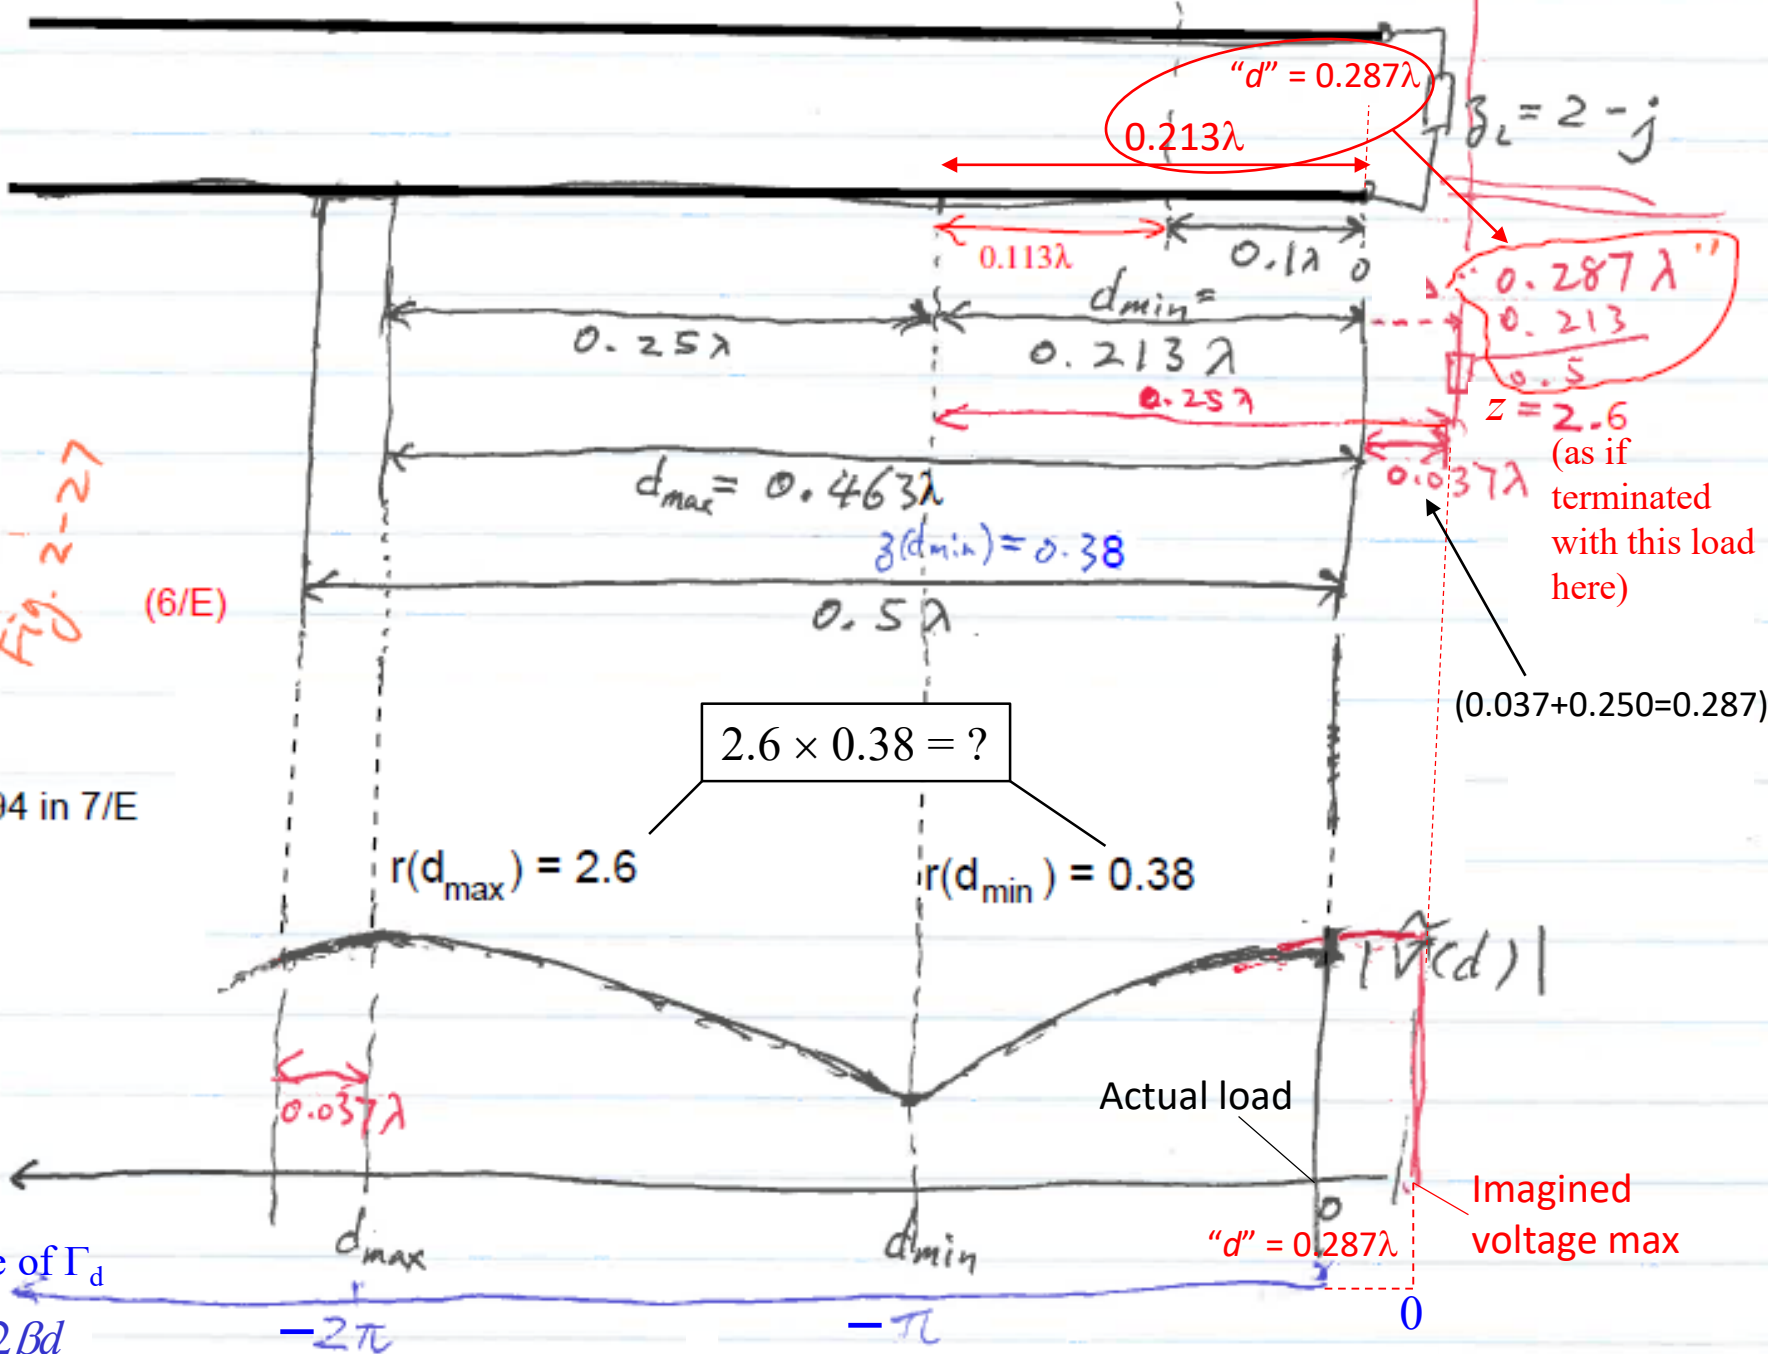 “d” = 0.287λ
0.213λ
z_L = 2 - j
0.113λ
0.1λ
0
"0.287λ"
0.213
0.5
d_min =
0.25λ
0.213λ
0.25λ
z = 2.6
(as if
terminated
with this load
here)
0.037λ
d_max = 0.463λ
z(d_min) = 0.38
Fig. 2-27
(6/E)
0.5λ
(0.037+0.250=0.287)
2.6 × 0.38 = ?
94 in 7/E
r(d_max) = 2.6
r(d_min) = 0.38
|Ṽ(d)|
0.037λ
Actual load
Imagined
voltage max
0
d_max
d_min
“d” = 0.287λ
e of Γ_d
-2π
-π
0
2βd